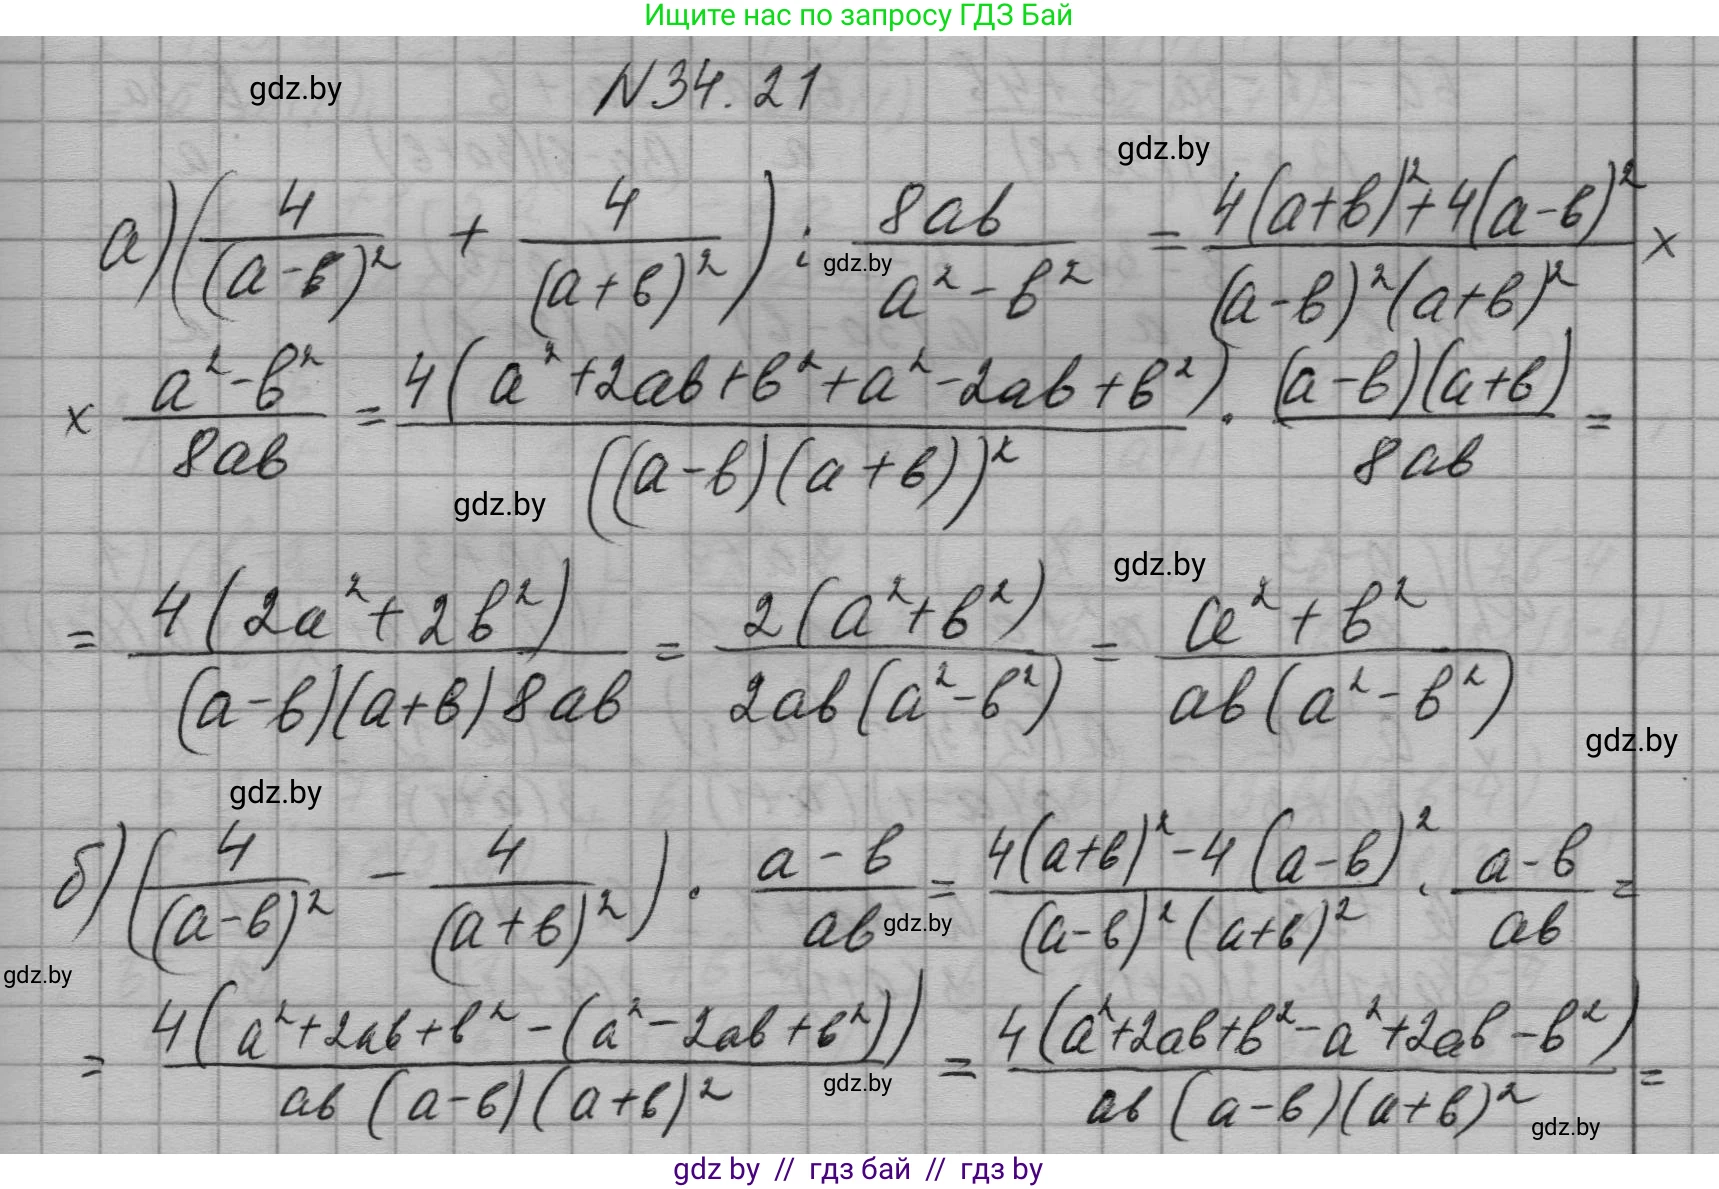 Ищите нас по запросу ГДЗ Бай
gdz.by
N34.21
gdz.by
а) (4/(a-b)² + 4/(a+b)²) : 8ab/(a²-b²) = (4(a+b)²+4(a-b)²)/((a-b)²(a+b)²) ×
gdz.by
× (a²-b²)/8ab = 4(a²+2ab+b²+a²-2ab+b²)/((a-b)(a+b))² · (a-b)(a+b)/8ab =
gdz.by
gdz.by
= 4(2a²+2b²)/((a-b)(a+b)8ab) = 2(a²+b²)/(2ab(a²-b²)) = (a²+b²)/(ab(a²-b²))
gdz.by
gdz.by
б) (4/(a-b)² - 4/(a+b)²) · (a-b)/ab = (4(a+b)²-4(a-b)²)/((a-b)²(a+b)²) · (a-b)/ab =
gdz.by
gdz.by
= 4(a²+2ab+b²-(a²-2ab+b²))/(ab(a-b)(a+b)²) = 4(a²+2ab+b²-a²+2ab-b²)/(ab(a-b)(a+b)²) =
gdz.by
gdz.by
gdz by // гдз бай // гдз by